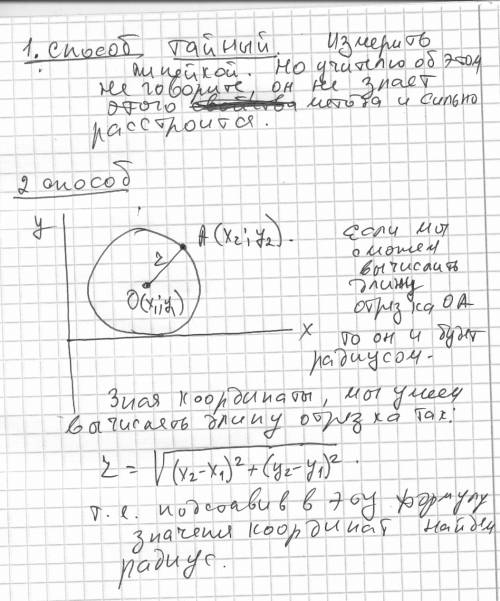 1. Способ тайный. Измерить
линейкой. Но учителю об этом
не говорите, он не знает
этого метода и сильно
расстроится.
2 способ
y
A(x2; y2).
r
O(x1; y1)
x
Если мы
сможем
вычислить
длину
отрезка OA
то он и будет
радиусом.
Зная координаты, мы умеем
вычислять длину отрезка так:
r = √(x2-x1)²+(y2-y1)².
т.е. подставив в эту формулу
значения координат найдем
радиус.